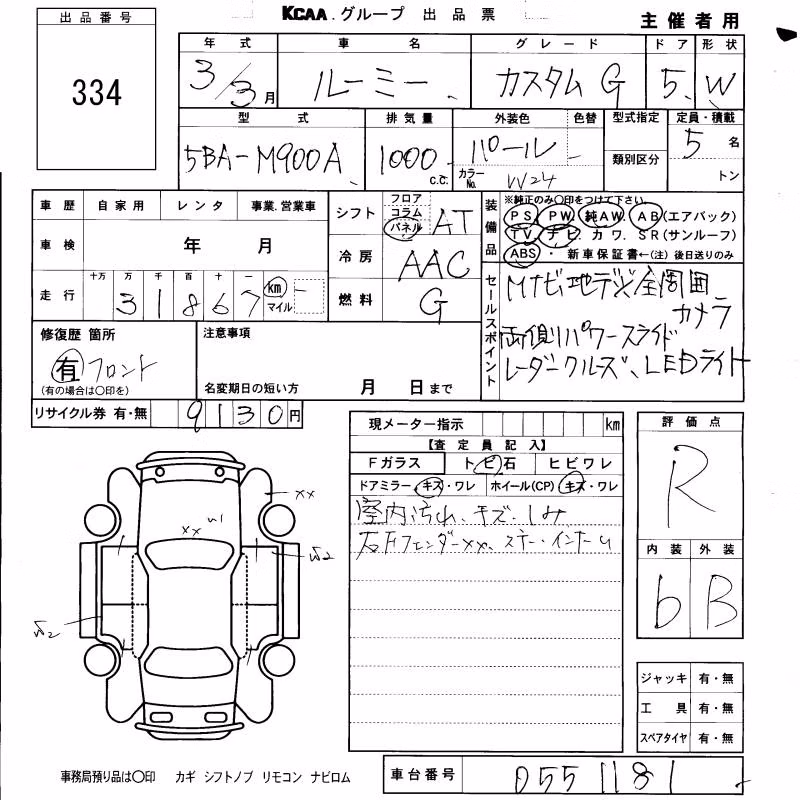 出品番号
334
KCAA.グループ 出品票
主催者用
年式 車名 グレード ドア 形状
3/3月 ルーミー カスタム G 5 W
型式 排気量 外装色 色替 型式指定 定員・積載
5BA-M900A 1000 c.c. パール 5名
カラーNo. W24 類別区分 トン
車歴 自家用 レンタ 事業.営業車
車検 年 月
走行 十万 万 千 百 十 一
31867 km マイル
シフト フロア コラム パネル AT
冷房 AAC
燃料 G
装備品 ※純正のみ○印をつけて下さい。
PS. PW. 純AW. AB(エアバック)
TV. ナビ. カワ. SR(サンルーフ)
ABS・新車保証書←(注)後日送りのみ
セールスポイント
Mナビ地デジ全周囲
カメラ
両側パワースライド
レーダークルーズ、LEDライト
修復歴 箇所
有 フロント
(有の場合は○印を)
注意事項
名変期日の短い方 月 日まで
リサイクル券 有・無 9130円
現メーター指示 km
【査定員記入】
Fガラス トビ石 ヒビワレ
ドアミラー キズ・ワレ ホイール(CP) キズ・ワレ
室内汚れ、キズ、しみ
右Fフェンダーxx、
評価点
R
内装 外装
b B
xx
xx W1
ジャッキ 有・無
工具 有・無
スペアタイヤ 有・無
事務局預り品は○印 カギ シフトノブ リモコン ナビロム
車台番号 0551181